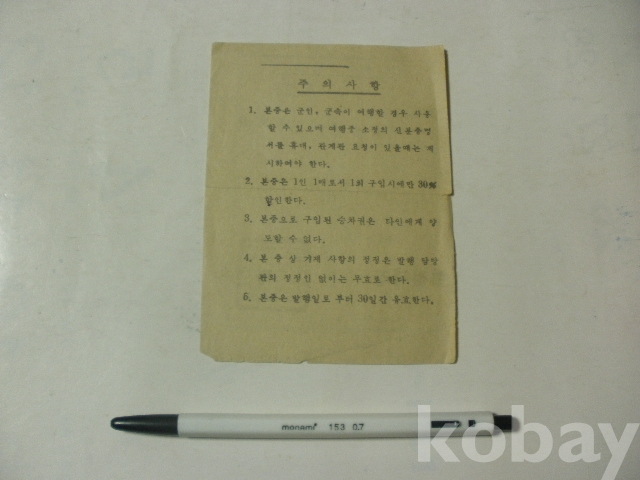 주 의 사 항
1. 본증은 군인, 군속이 여행할 경우 사용
할 수 있으며 여행중 소정의 신분증명
서를 휴대, 관계관 요청이 있을때는 제
시하여야 한다.
2. 본증은 1인 1매로서 1회 구입시에만 30%
할인한다.
3. 본증으로 구입된 승차권은 타인에게 양
도할 수 없다.
4. 본 증 상 기재 사항의 정정은 발행 담당
관의 정정인 없이는 무효로 한다.
5. 본증은 발행일로 부터 30일간 유효한다.
monami 153 0.7
kobay